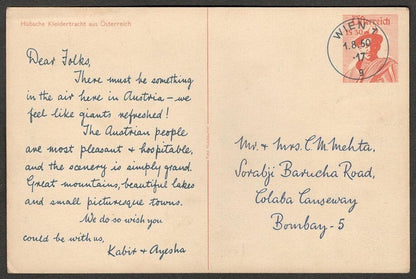 Hübsche Kleidertracht aus Österreich
Dear Folks,
There must be something
in the air here in Austria – we
feel like giants refreshed!
The Austrian people
are most pleasant & hospitable,
and the scenery is simply grand.
Great mountains, beautiful lakes
and small picturesque towns.
We do so wish you
could be with us,
Kabir & Ayesha
WIEN 7
1.8.60
-17
9
Österreich
Mr. & Mrs. C M Mehta,
Sorabji Barucha Road,
Colaba Causeway
Bombay-5